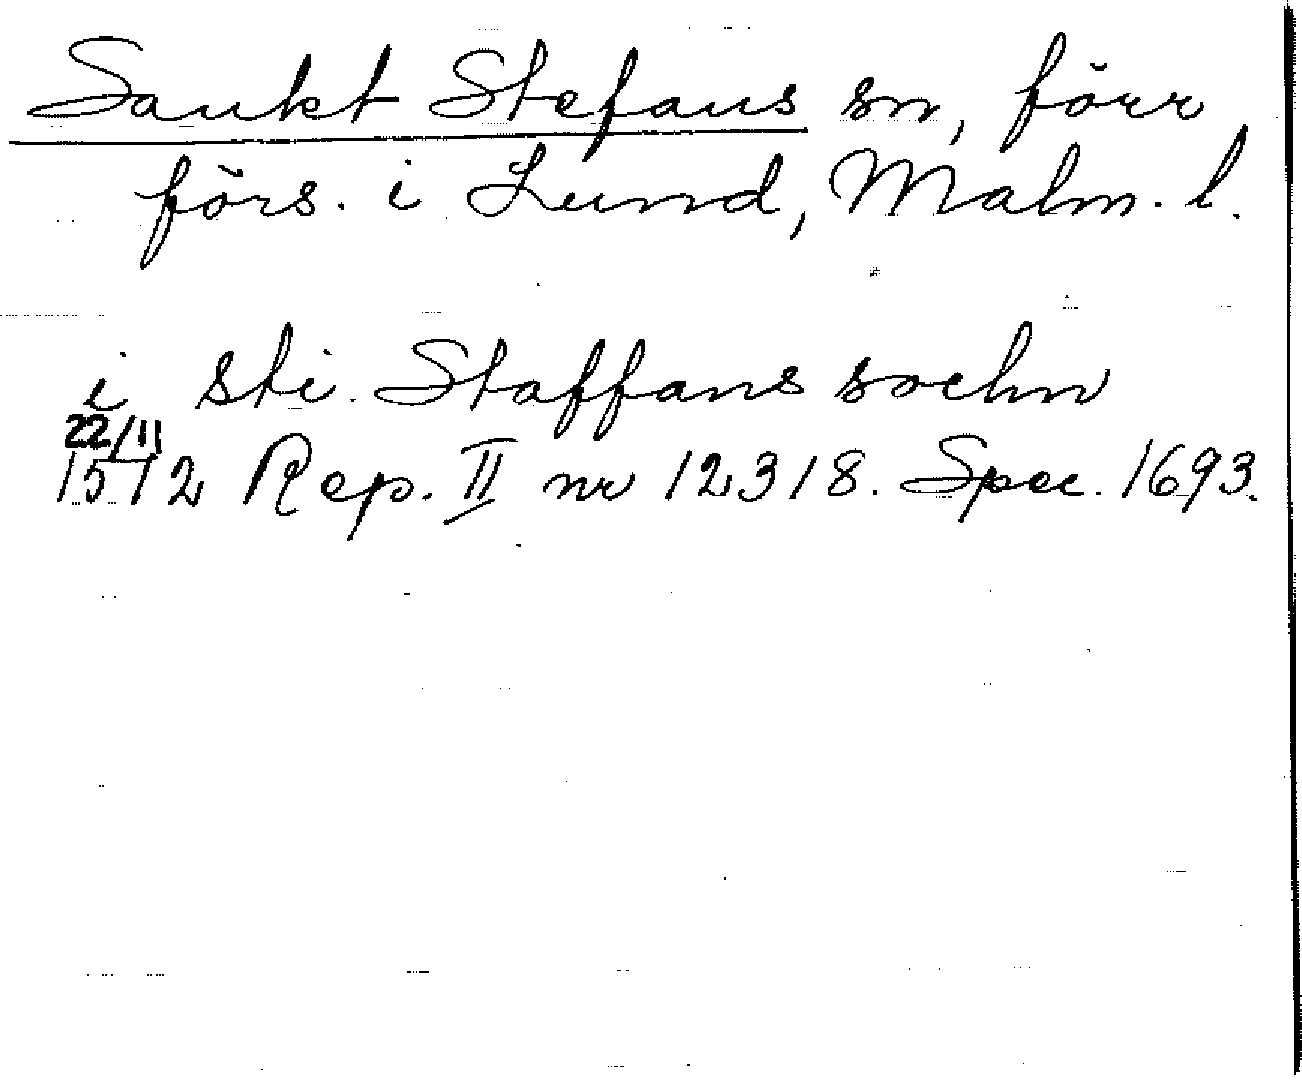 Sankt Stefans sn, förr
förs. i Lund, Malm. l.
i sti. Staffans sochn
22/11
1512 Rep. II nr 12318. Spec. 1693.